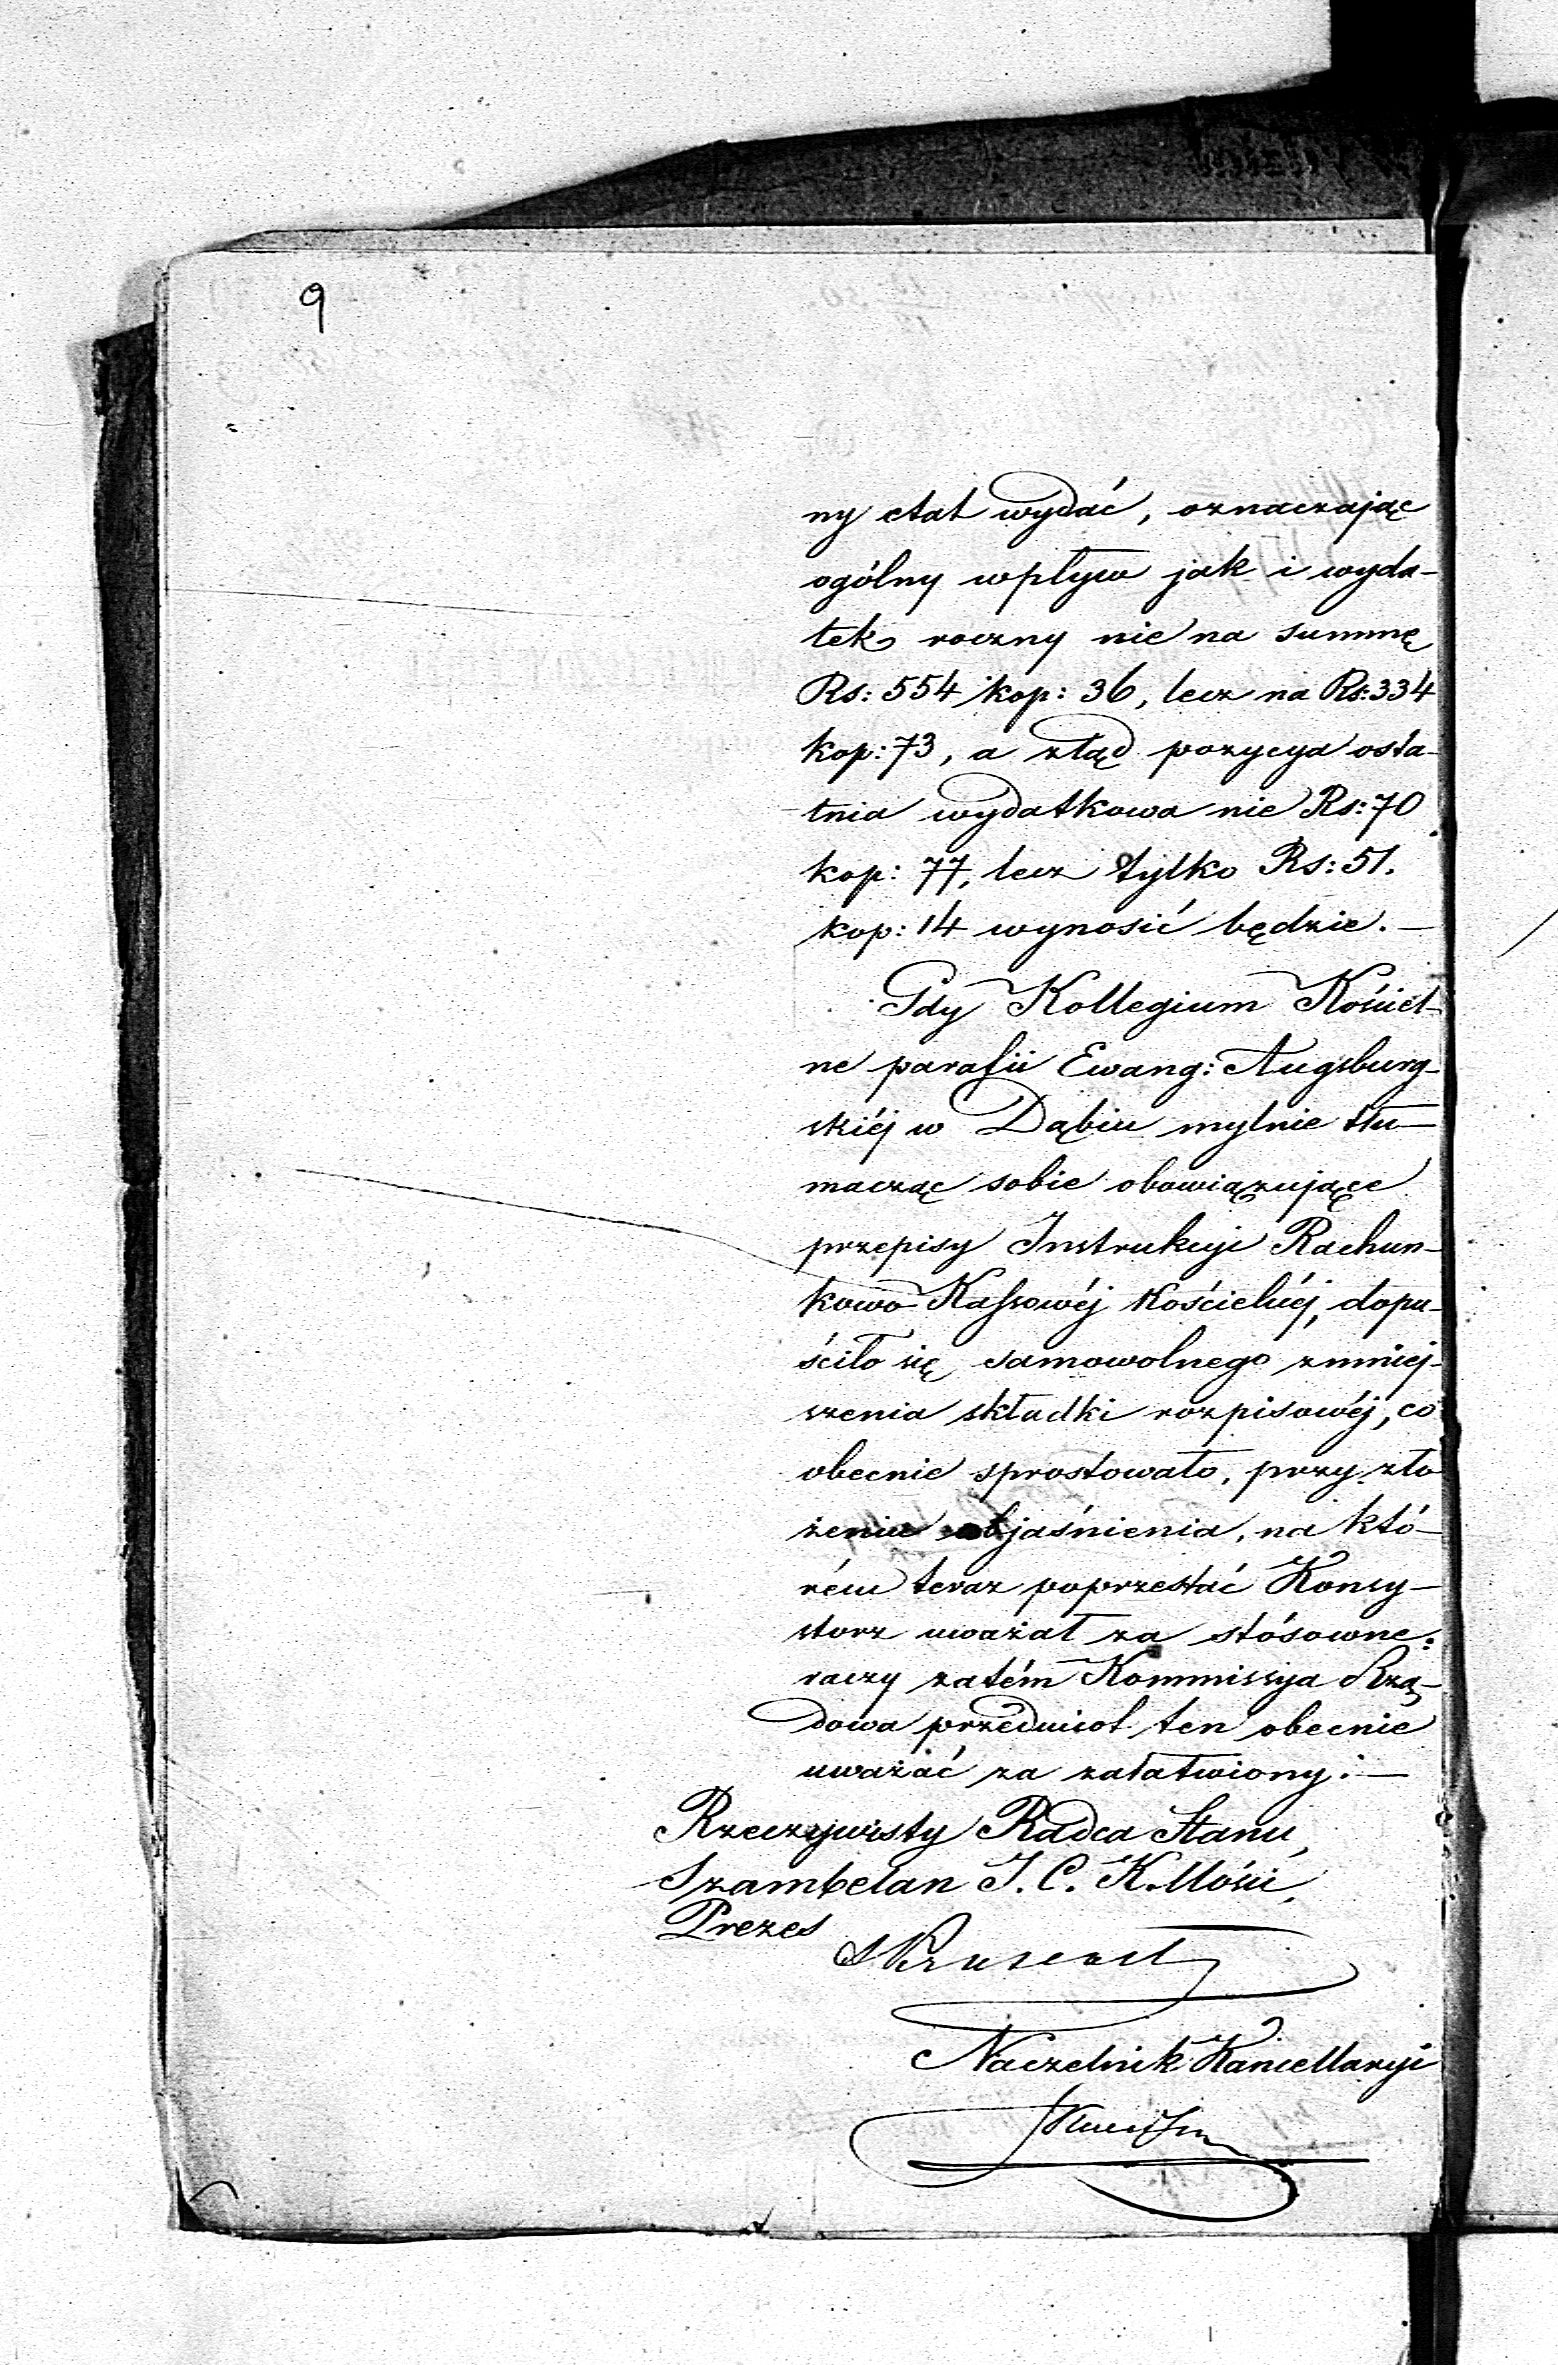 9
ny etat wydać, oznaczając
ogólny wpływ jak i wyda-
tek roczny nie na summę
Rs: 554 kop: 36, lecz na Rs: 334
kop: 73, a ztąd pozycya osta-
tnia wydatkowa nie Rs: 70
kop: 77, lecz tylko Rs: 51.
kop: 14 wynosić będzie. —
Gdy Kollegium Kościel-
ne parafii Ewang: Augsburg-
skiéj w Dąbiu mylnie tłu-
macząc sobie obowiązujące
przepisy Instrukcyi Rachun-
kowo Kassowéj Kościelnéj, dopu-
ściło się samowolnego zmniej-
szenia składki rozpisowéj, co
obecnie sprostowało, przy zło
żeniu objaśnienia, na któ-
rém teraz poprzestać Konsy-
storz uważał za stósowne:
raczy zatém Kommissya Rzą-
dowa przedmiot ten obecnie
uważać za załatwiony: —
Rzeczywisty Radca Stanu,
Szambelan J. C. K. Mości,
Prezes
Naczelnik Kancellaryi